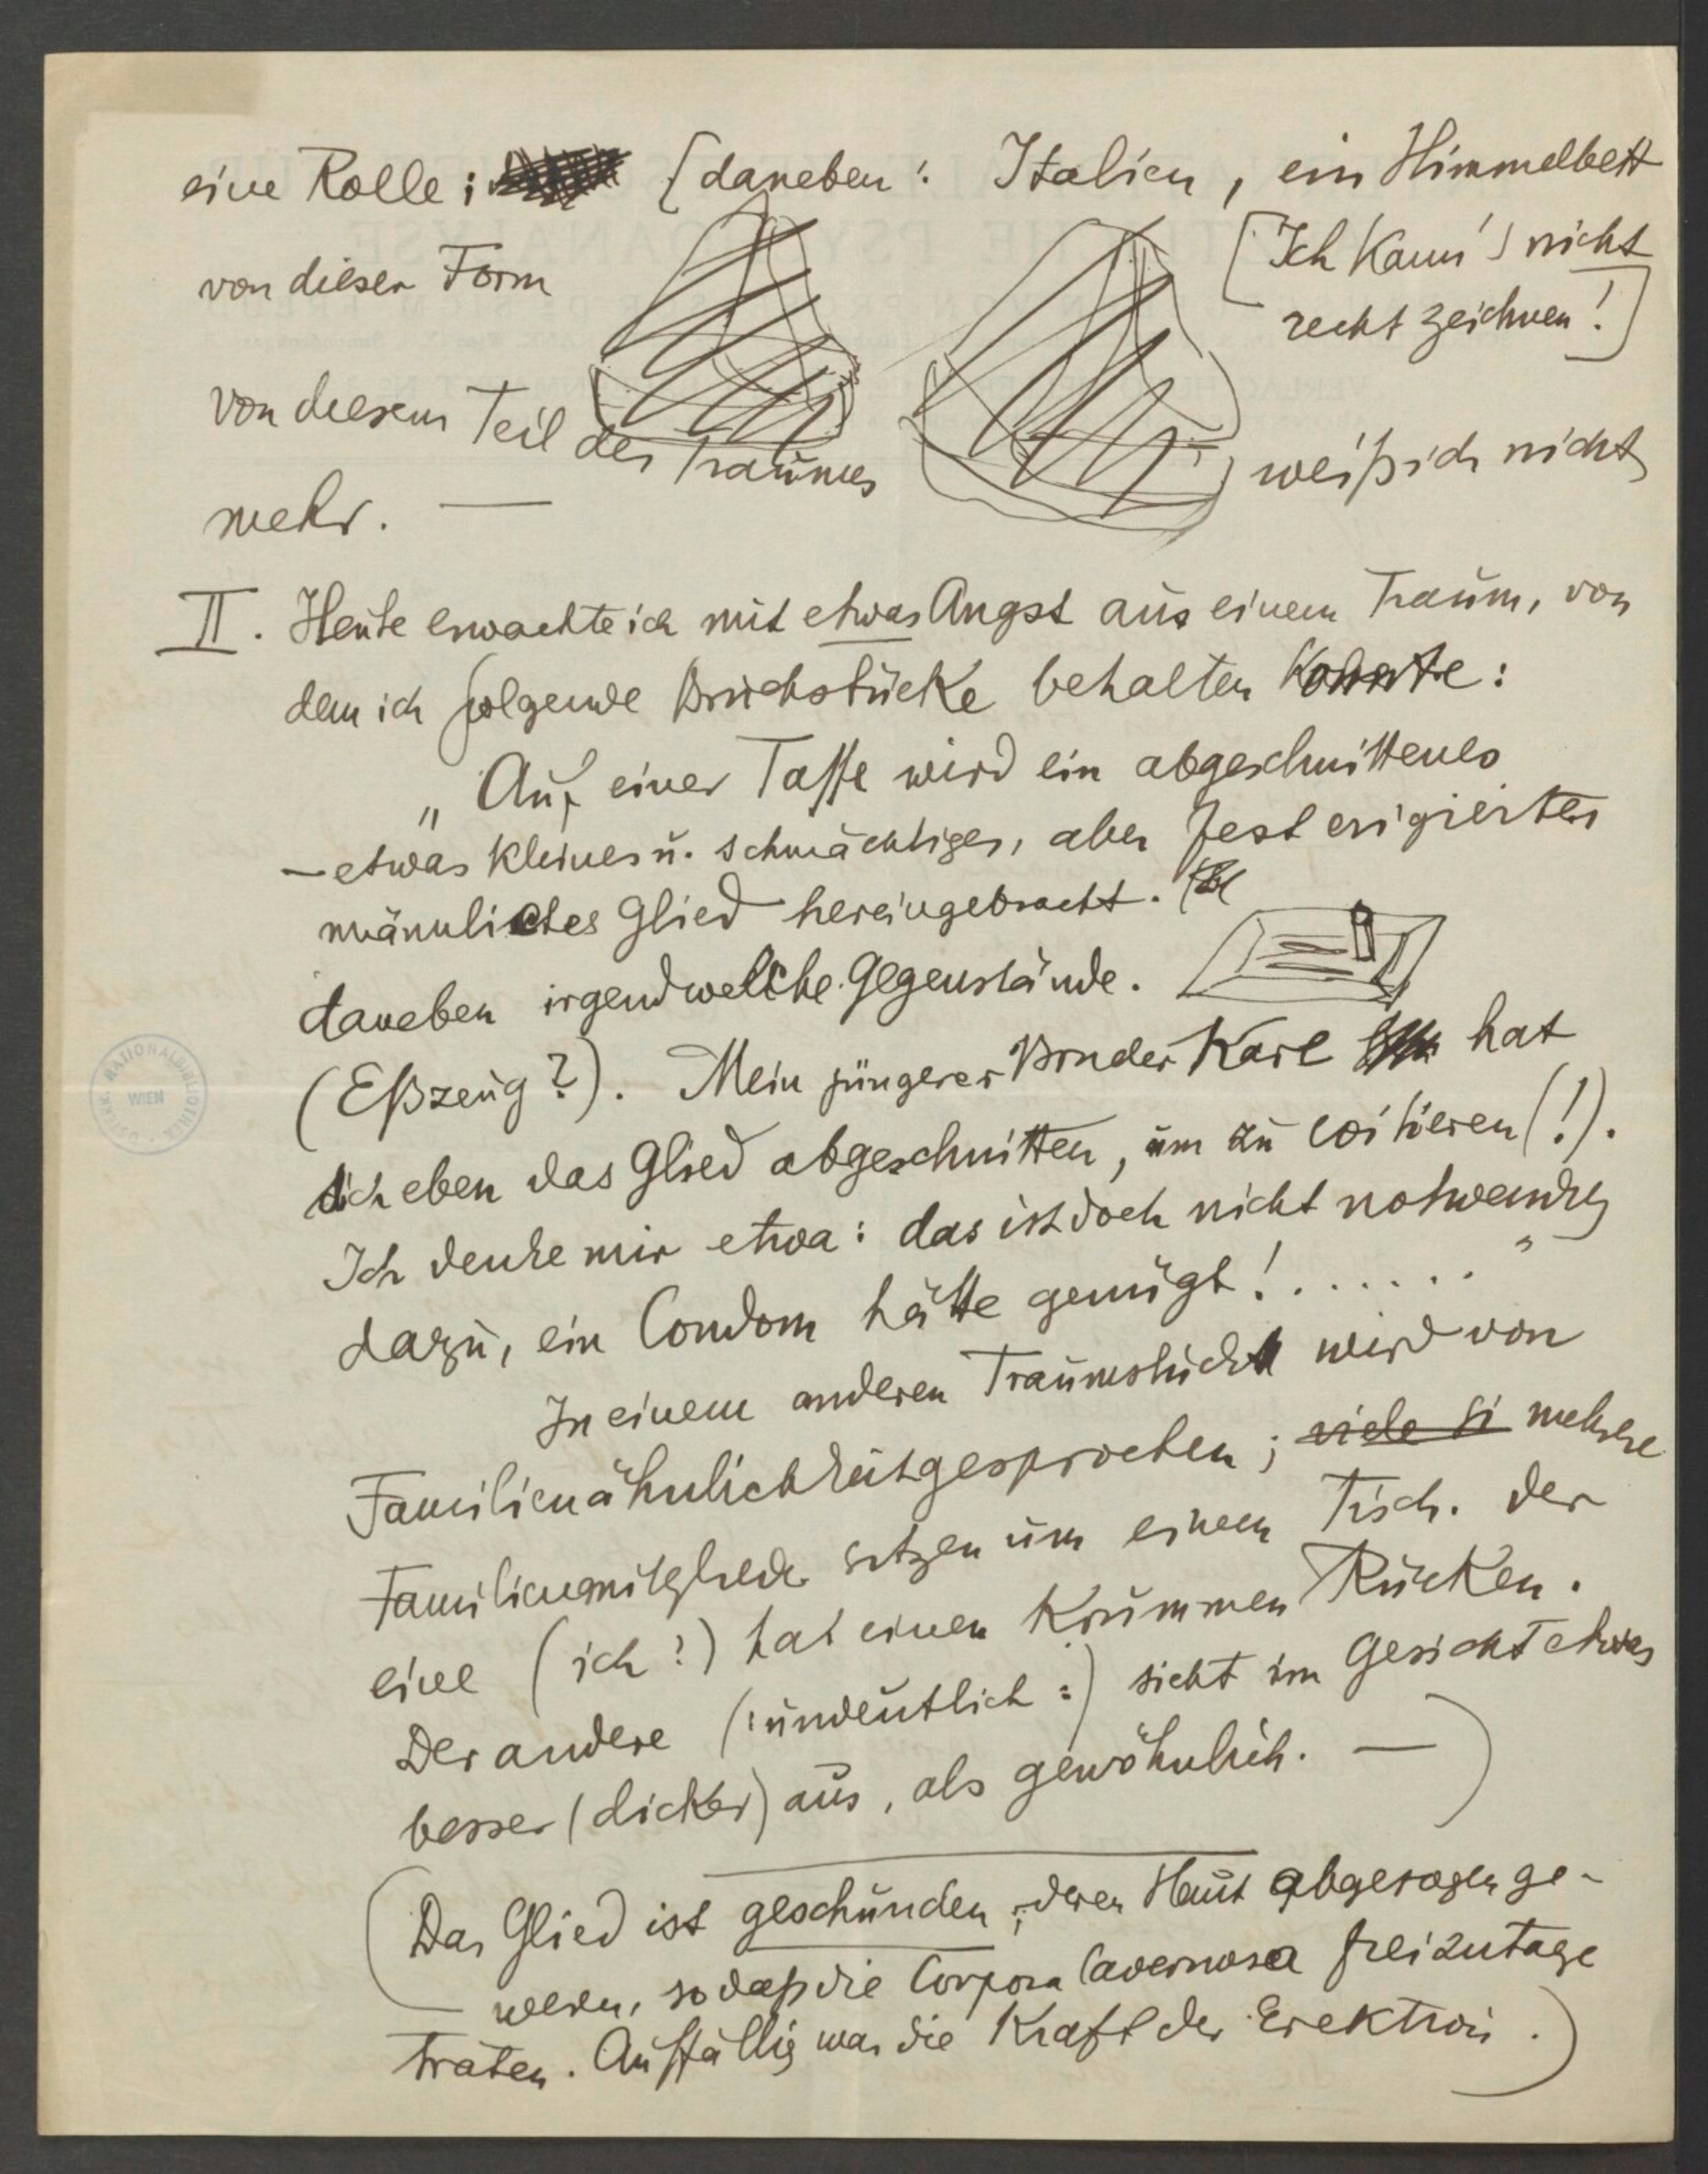 eine Rolle; [daneben: Italien, ein Himmelbett
von dieser Form
[Ich kann's nicht
recht zeichnen!]
von diesem Teil des Traumes weiß ich nichts
mehr. —
II. Heute erwachte ich mit etwas Angst aus einem Traum, von
dem ich folgende Bruchstücke behalten konnte:
„Auf einer Tasse wird ein abgeschnittenes
— etwas kleines u. schmächtiges, aber fest erigiertes
männliches Glied hereingebracht.
daneben irgendwelche Gegenstände.
(Eßzeug?). Mein jüngerer Bruder Karl hat
sich eben das Glied abgeschnitten, um zu coitieren (!).
Ich denke mir etwa: das ist doch nicht notwendig
dazu, ein Condom hätte genügt! . . . . . . "
In einem anderen Traumstück wird von
Familienähnlichkeit gesprochen; viele si mehrere
Familienmitglieder sitzen um einem Tisch. Der
eine (ich?) hat einen krummen Rücken.
Der andere (:undeutlich:) sieht im Gesicht etwas
besser (dicker) aus, als gewöhnlich. — )
(Das Glied ist geschunden, deren Haut abgezogen ge-
— worden, sodaß die Corpora Cavernosa frei zutage
träten. Auffällig war die Kraft der Erektion.)
ÖSTERR. NATIONALBIBLIOTHEK
WIEN